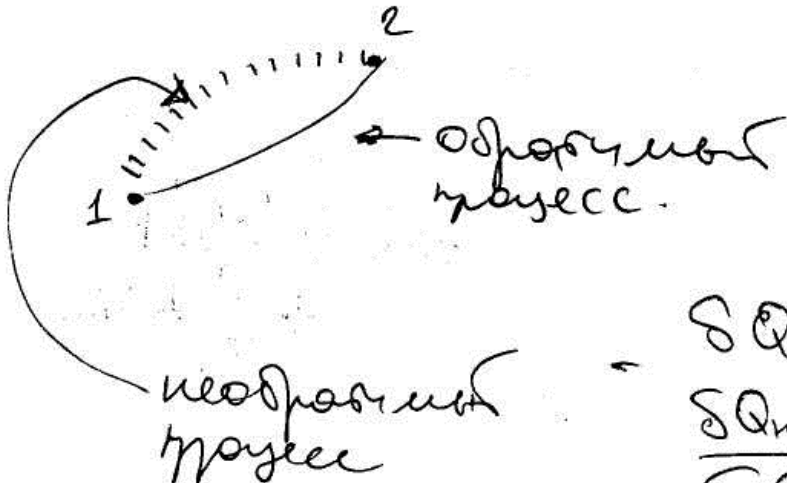 2
1
обратимый
процесс.
необратимый
процесс
δQ
δQн